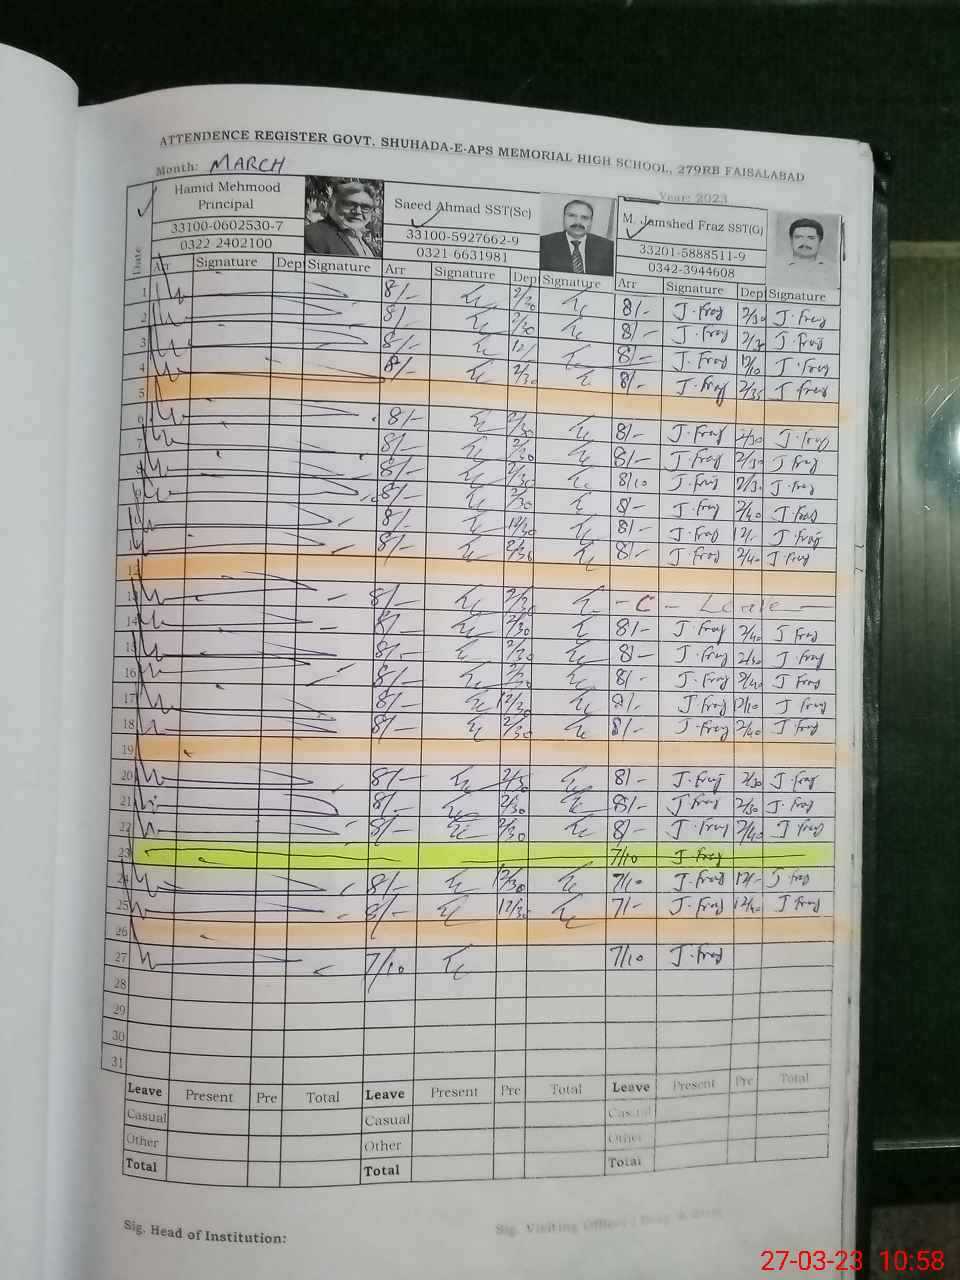 ATTENDENCE REGISTER GOVT. SHUHADA-E-APS MEMORIAL HIGH SCHOOL, 279RB FAISALABAD
Month: MARCH
Year: 2023
Hamid Mehmood
Principal
33100-0602530-7
0322-2402100
Saeed Ahmad SST(Sc)
33100-5927662-9
0321-6631981
M. Jamshed Fraz SST(G)
33201-5888511-9
0342-3944608
Date Arr Signature Dep Signature Arr Signature Dep Signature Arr Signature Dep Signature
1 8/- 2/30 8/- J.Fraz 2/30 J.Fraz
2 8/ 2/30 8/- J.Fraz 2/30 J.Fraz
3 8/- 12/ 8/- J.Fraz 12/10 J.Fraz
4 8/- 2/30 8/- J.Fraz 2/35 J.Fraz
5
6 8/- 2/30 8/- J.Fraz 2/30 J.Fraz
7 8/- 2/30 8/- J.Fraz 2/30 J.Fraz
8 8/- 2/30 8/10 J.Fraz 2/30 J.Fraz
9 8/- 2/30 8/- J.Fraz 2/40 J.Fraz
10 8/- 12/30 8/- J.Fraz 12/- J.Fraz
11 8/- 2/30 8/- J.Fraz 2/40 J.Fraz
12
13 8/- 2/30 - C - Leave -
14 8/- 2/30 8/- J.Fraz 2/40 J.Fraz
15 8/- 2/30 8/- J.Fraz 2/30 J.Fraz
16 8/- 2/30 8/- J.Fraz 2/40 J.Fraz
17 8/- 12/30 8/- J.Fraz 12/10 J.Fraz
18 8/- 2/30 8/- J.Fraz 2/40 J.Fraz
19
20 8/- 2/30 8/- J.Fraz 2/30 J.Fraz
21 8/- 2/30 8/- J.Fraz 2/30 J.Fraz
22 8/- 2/30 8/- J.Fraz 2/40 J.Fraz
23 7/10 J.Fraz
24 8/- 12/30 7/10 J.Fraz 12/- J.Fraz
25 8/- 12/30 7/- J.Fraz 12/40 J.Fraz
26
27 7/10 7/10 J.Fraz
28
29
30
31
Leave Present Pre Total Leave Present Pre Total Leave Present Pre Total
Casual Casual Casual
Other Other Other
Total Total Total
Sig. Head of Institution:
Sig. Visiting Officer
27-03-23 10:58